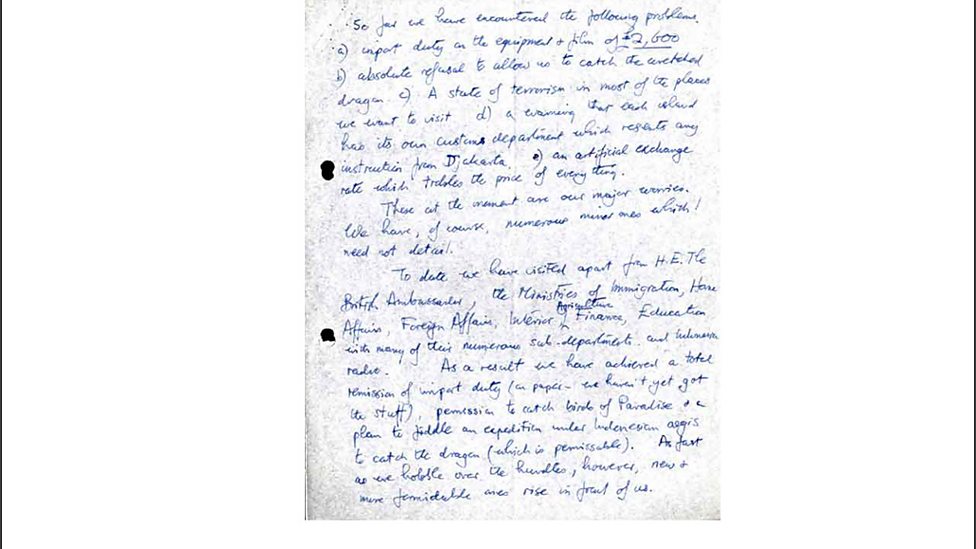 So far we have encountered the following problems.
a) import duty on the equipment + film of £2,600
b) absolute refusal to allow us to catch the wretched
dragon. c) A state of terrorism in most of the places
we want to visit d) a warning that each island
has its own customs department which resents any
instruction from Djakarta. e) an artificial exchange
rate which trebles the price of everything.
These at the moment are our major worries.
We have, of course, numerous minor ones which I
need not detail.
To date we have visited apart from H.E. The
British Ambassador, the Ministries of Immigration, Home
Agriculture
Affairs, Foreign Affairs, Interior, Finance, Education
with many of their numerous sub-departments and Indonesian
radio. As a result we have achieved a total
remission of import duty (on paper - we haven't yet got
the stuff), permission to catch birds of Paradise + a
plan to fiddle an expedition under Indonesian aegis
to catch the dragon (which is permissable). As fast
as we hobble over the hurdles, however, new +
more formidable ones rise in front of us.